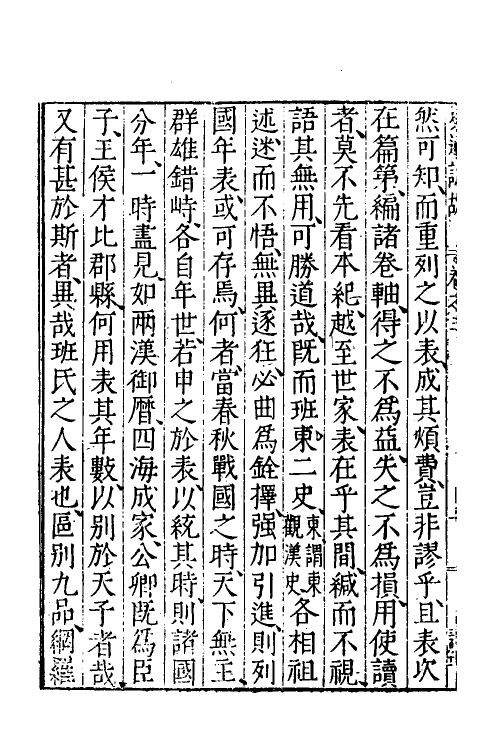 然可知、而重列之以表、成其煩費、豈非謬乎、且表次
在篇第、編諸卷軸、得之不爲益、失之不爲損、用使讀
者、莫不先看本紀、越至世家、表在乎其間、緘而不視、
語其無用、可勝道哉、既而班東二史東謂東觀漢史各相祖
述、迷而不悟、無異逐狂、必曲爲銓擇、强加引進、則列
國年表、或可存焉、何者、當春秋戰國之時、天下無主、
群雄錯峙、各自年世、若申之於表、以統其時、則諸國
分年、一時盡見、如兩漢御曆、四海成家、公卿既爲臣
子、王侯才比郡縣、何用表其年數、以别於天子者哉、
又有甚於斯者、異哉班氏之人表也、區别九品、網羅